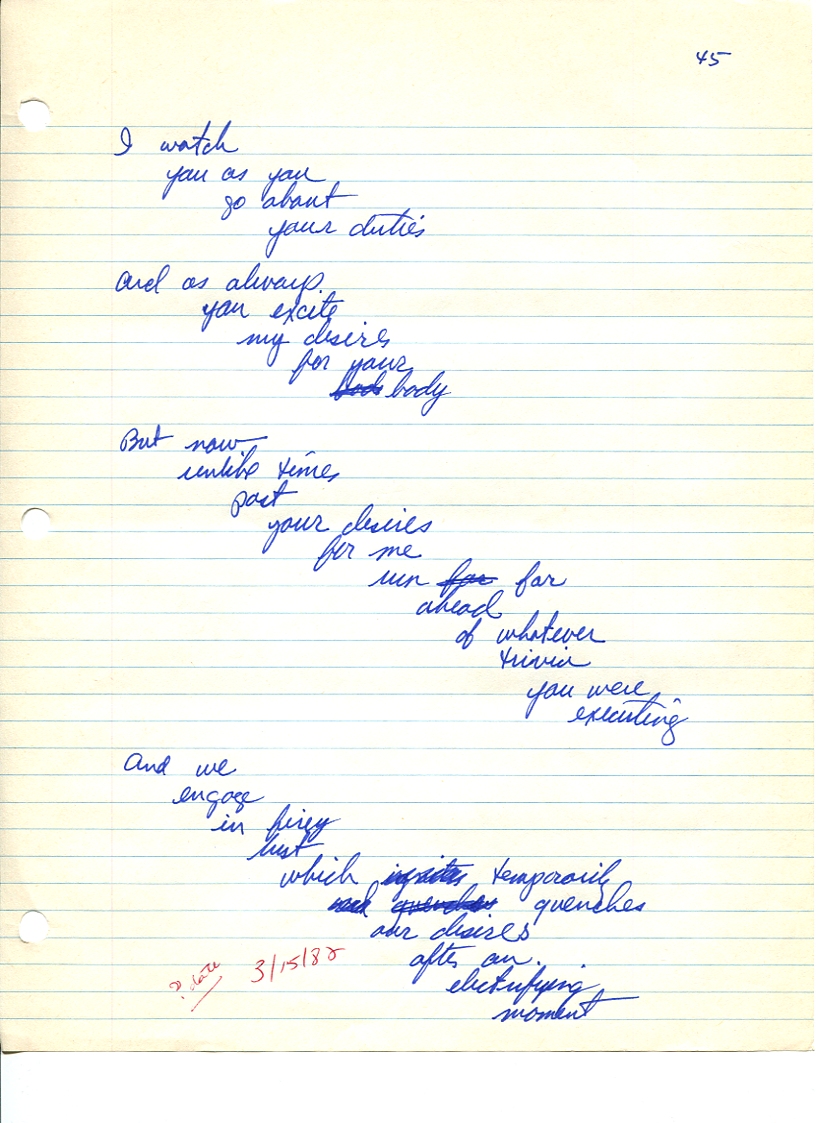 45
I watch
you as you
go about
your duties
And as always
you excite
my desires
for your
body
But now
unlike times
past
your desires
for me
run far
ahead
of whatever
trivia
you were
executing
And we
engage
in firey
lust
which ignites temporarily
and quenches quenches
our desires
after an
electrifying
moment
? date 3/15/82